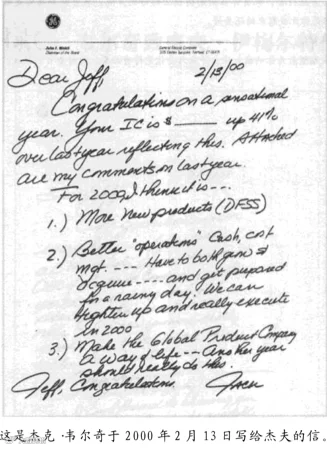 John F. Welch
Chairman of the Board
General Electric Company
Dear Jeff,
2/13/00
Congratulations on a sensational
year. Your IC is $ ____ up 41%
over last year reflecting this. Attached
are my comments on last year.
For 2000, I think it is ---
1.) More New products (DFSS)
2.) Better "operations" Cash, cost
mgt. ---- Have to both
---- and get prepared
for a rainy day. We can
tighten up and really execute
in 2000
3.) Make the Global Product Company
a way of life -- Another year
should really do this.
Jeff, Congratulations. Jack
这是杰克·韦尔奇于2000年2月13日写给杰夫的信。